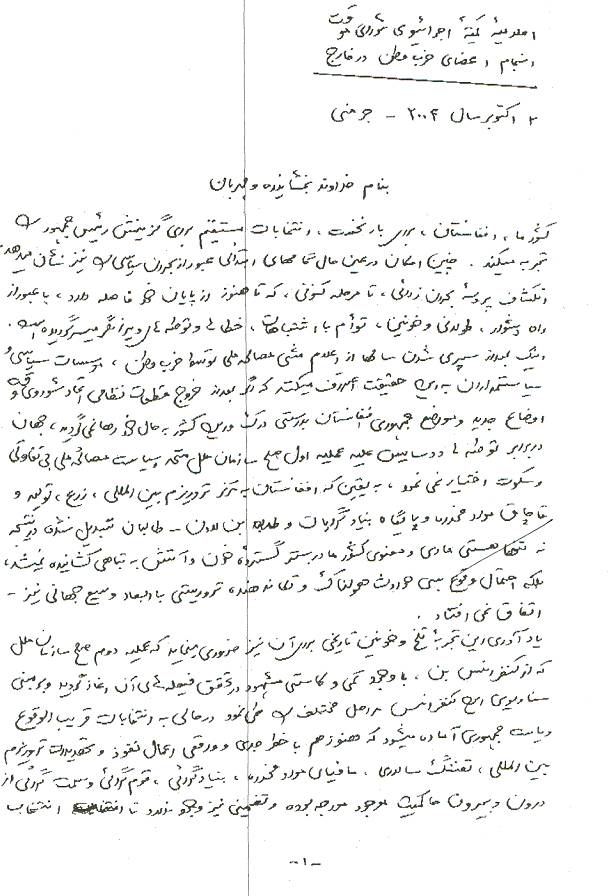 اعلامیهٔ کمیتهٔ اجرائیوی شورای مؤقت
انسجام اعضای حزب وطن در خارج
۲ اکتوبر سال ۲۰۰۴ - جرمنی
بنام خداوند بخشاینده و مهربان
کشور ما، افغانستان، برای بار نخست، انتخابات مستقیم برای گزینش رئیس جمهور را
تجربه میکند. چنین امکان در عین حال گام های ابتدائی عبور از بحران سیاسی را نیز نشان میدهد.
انکشاف پروسهٔ بحران زدائی، تا مرحله کنونی، که تا هنوز از پایان خود فاصله دارد، با عبور از
راه دشوار، طولانی و خونین، توأم با اشتباهات، خطاها و توطئه های ویرانگر میسر گردیده است.
اینک بعد از سپری شدن سالها از اعلام مشی مصالحه ملی توسط حزب وطن، مؤسسات سیاسی و
سیاستمداران به این حقیقت اعتراف میکنند که اگر بعد از خروج قطعات نظامی اتحاد شوروی وقت
اوضاع جدید و مواضع جمهوری افغانستان بدرستی درک و این کشور به حال خود رها نمی گردید، جهان
در برابر توطئه ها و دسایس علیه عملیه اول صلح سازمان ملل متحد و سیاست مصالحه ملی بی تفاوتی
و سکوت اختیار نمی نمود، به یقین که افغانستان به مرکز تروریزم بین المللی، زرع، تولید و
قاچاق مواد مخدره و پایگاه بنیادگرایان و طالبان بن لادن - طالبان تبدیل نشده در نتیجه
نه تنها هستی مادی و معنوی کشور ما در بستر گستردهٔ خون و آتش به تباهی کشانیده نمیشد،
بلکه احتمال وقوع بسی حوادث هولناک و تکاندهنده تروریستی با ابعاد وسیع جهانی نیز -
اتفاق نمی افتاد.
یادآوری این تجربهٔ تلخ و خونین تاریخی برای آن نیز ضروری مینماید که عملیه دوم صلح سازمان ملل
که از کنفرانس بن، با وجود کمی و کاستی مشهود در تحقق فیصله های آن آغاز گردید و بر مبنی
سناریوی این کنفرانس مراحل مختلف را طی نمود در حالی به انتخابات قریب الوقوع
ریاست جمهوری آماده میشود که هنوز هم با خطر جدی و واقعی اعمال نفوذ و تهدیدات تروریزم
بین المللی، تفنگ سالاری، مافیای مواد مخدره، بنیادگرائی، قوم گرائی و سمت گرائی از
درون و بیرون حاکمیت موجود مواجه بوده و تضمینی نیز وجود ندارد تا انتخاب
-۱-